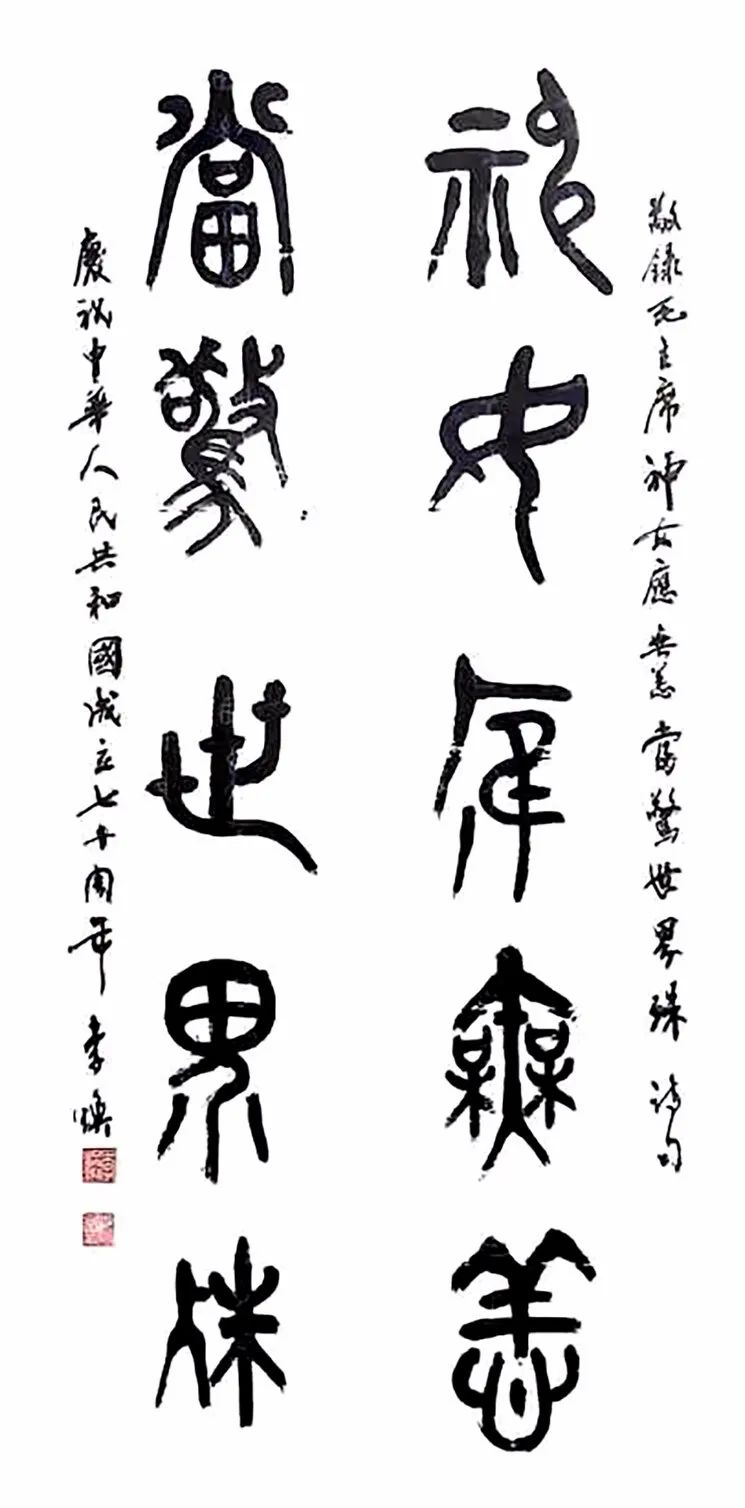 敬錄毛主席神女應無恙當驚世界殊 詩句
神女應無恙
當驚世界殊
慶祝中華人民共和國成立七十周年 李煥